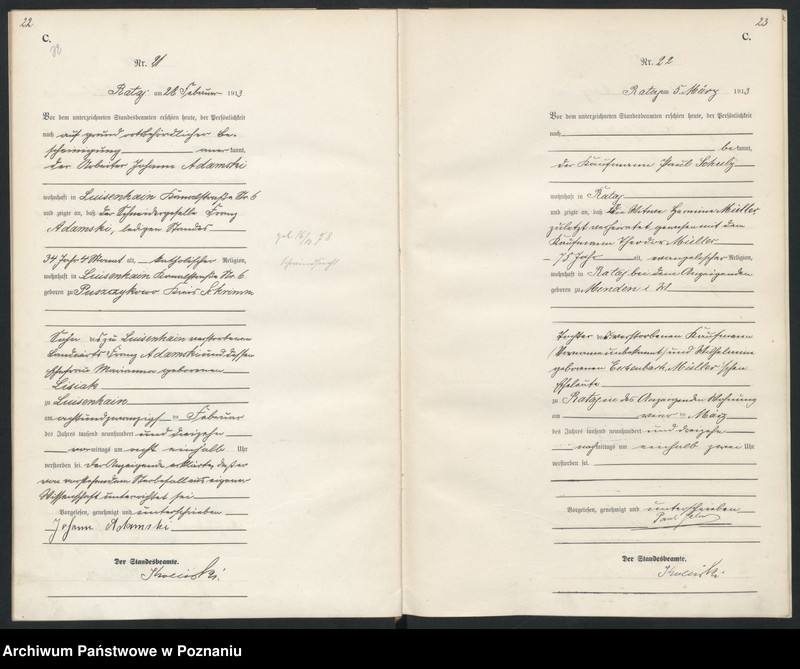 22
C.
Nr. 21
Rataj am 28 Februar 1913
Vor dem unterzeichneten Standesbeamten erschien heute, der Persönlichkeit
nach auf grund ortsbehördlicher Be-
scheinigung anerkannt,
der Arbeiter Johann Adamski
wohnhaft in Luisenhain Kanalstraße Nr. 6
und zeigte an, daß der Schneidergeselle Franz
Adamski, ledigen Standes
34 Jahr 4 Monat alt, katholischer Religion,
wohnhaft in Luisenhain Kanalstraße Nr. 6
geboren zu Puszczykowo Kreis Schrimm
Sohn des zu Luisenhain verstorbenen
Landwirts Franz Adamski und dessen
Ehefrau Marianna geborenen
Lisiak
zu Luisenhain
am achtundzwanzigsten Februar
des Jahres tausend neunhundert und dreizehn
vormittags um acht einhalb Uhr
verstorben sei. Der Anzeigende erklärte, daß er
von vorstehendem Sterbefall aus eigener
Wissenschaft unterrichtet sei
Vorgelesen, genehmigt und unterschrieben
Johann Adamski
Der Standesbeamte.
23
C.
Nr. 22
Rataj am 5 März 1913
Vor dem unterzeichneten Standesbeamten erschien heute, der Persönlichkeit
nach
bekannt,
der Kaufmann Paul Schulz
wohnhaft in Rataj
und zeigte an, daß die Witwe Hermine Müller
zuletzt verheiratet gewesen mit dem
Kaufmann Theodor Müller
75 Jahr alt, evangelischer Religion,
wohnhaft in Rataj bei dem Anzeigenden
geboren zu Menden i W
Tochter des verstorbenen Kaufmann
(Vorname unbekannt) und Wilhelmine
geborenen Müller'schen
Eheleute
zu Rataj in des Anzeigenden Wohnung
am vier März
des Jahres tausend neunhundert und dreizehn
nachmittags um einhalb zwei Uhr
verstorben sei.
Vorgelesen, genehmigt und unterschrieben
Paul Schulz
Der Standesbeamte.
Archiwum Państwowe w Poznaniu